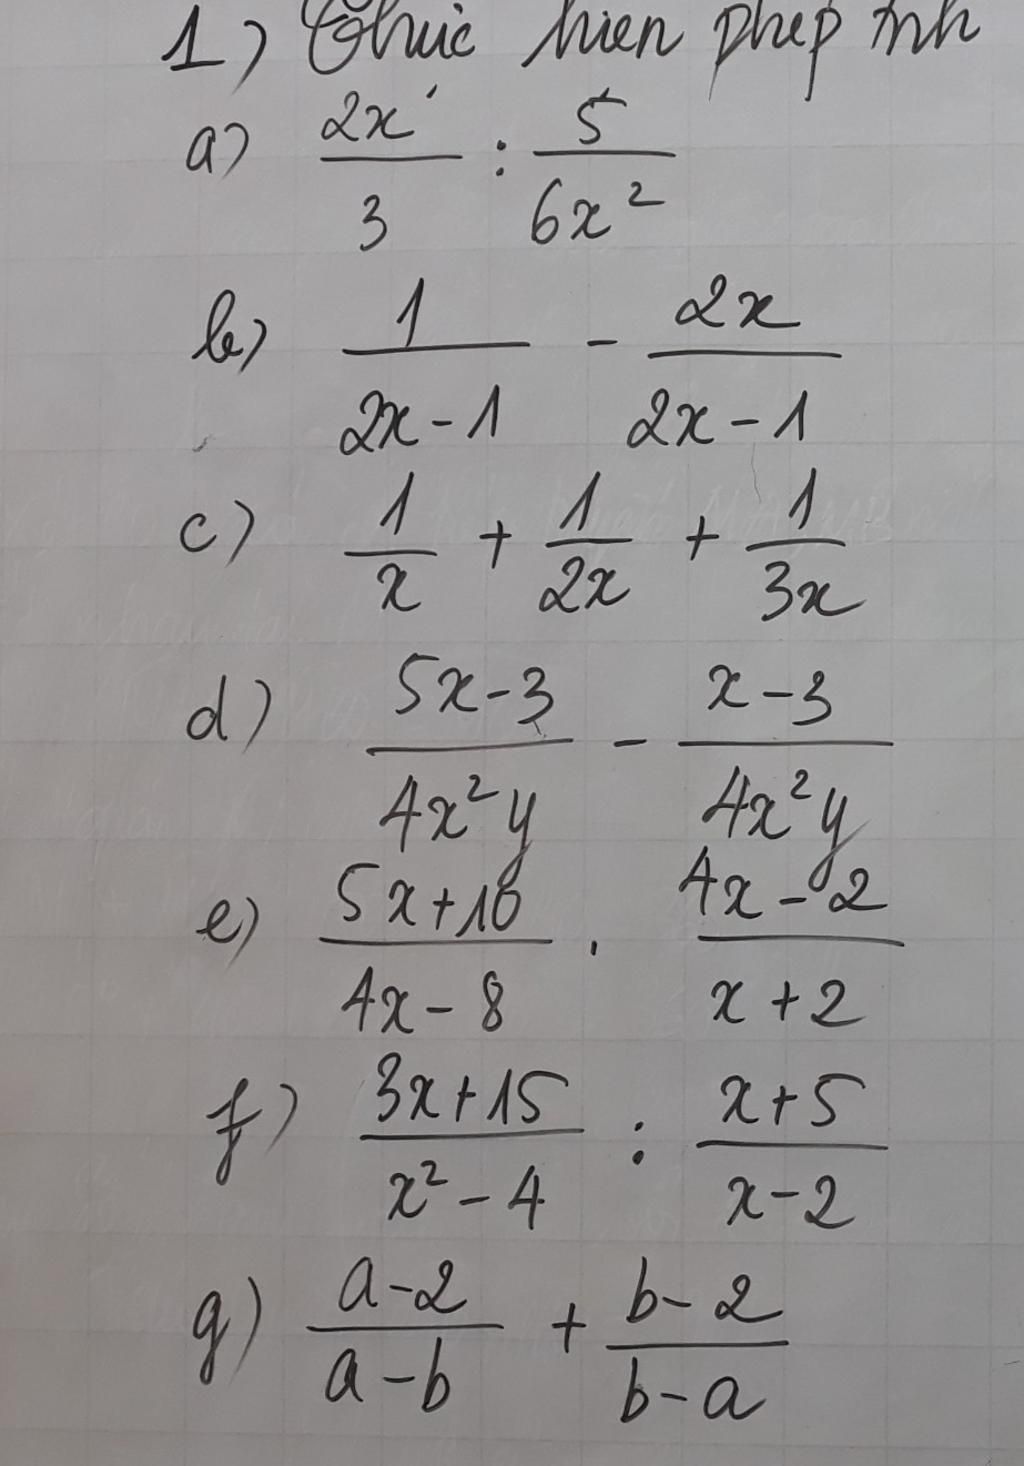 1) Thực hiện phép tính
a) 2x/3 : 5/6x²
b) 1/2x-1 - 2x/2x-1
c) 1/x + 1/2x + 1/3x
d) 5x-3/4x²y - x-3/4x²y
e) 5x+10/4x-8 . 4x-2/x+2
f) 3x+15/x²-4 : x+5/x-2
g) a-2/a-b + b-2/b-a